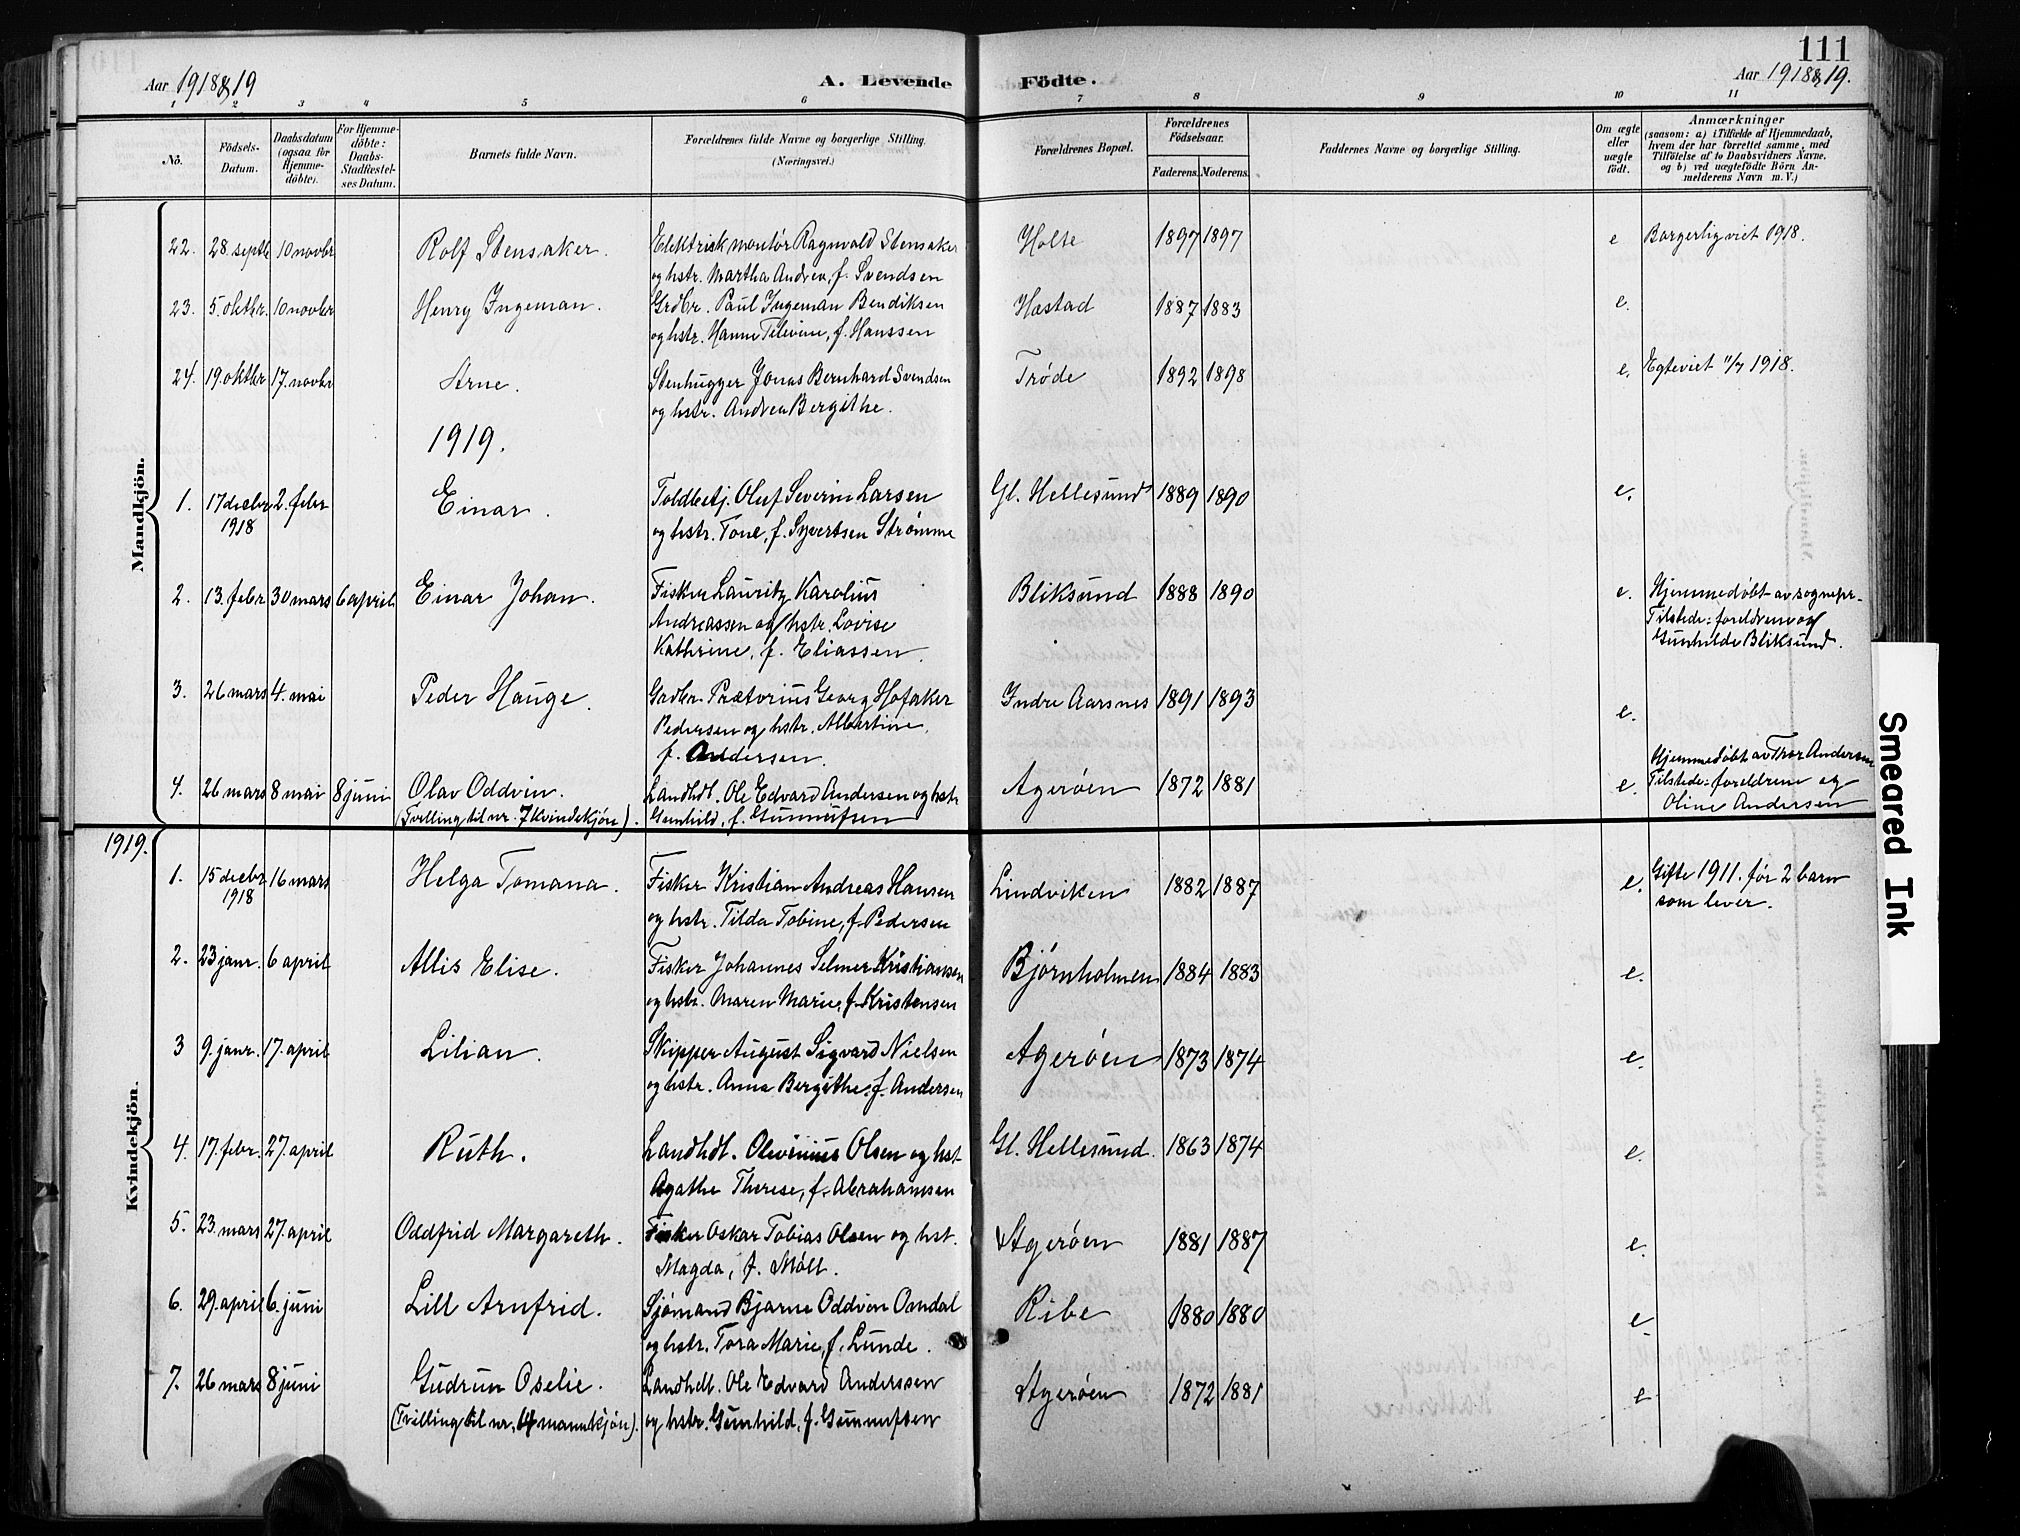 111
Aar 1918 & 19
A. Levende Födte.
Aar 1918 & 19.
1 2 3 4 5 6 7 8 9 10 11
No.
Födsels-Datum.
Daabsdatum (ogsaa for Hjemme-döbte).
For Hjemme-döbte: Daabs-Stadfæstel-ses Datum.
Barnets fulde Navn.
Forældrenes fulde Navne og borgerlige Stilling. (Næringsvei.)
Forældrenes Bopæl.
Forældrenes Födselsaar.
Faderens. Moderens.
Faddernes Navne og borgerlige Stilling.
Om ægte eller uægte födt.
Anmærkninger
(saasom: a) i Tilfælde af Hjemmedaab, hvem der har forrettet samme, med Tilföielse af to Daabsvidners Navne, og b) ved uægtefödte Börn An-melderens Navn m. V.)
Mandkjön.
22. 28. septbr 10 novbr Rolf Stensaker. Elektrisk montör Ragnvald Stensaker Holte 1897 1897 e Borgerlig viet 1918.
og hstr. Martha Andrea, f. Svendsen
23. 5. oktbr. 10 novbr Henry Ingeman. Grdbr. Paul Ingeman Bendiksen Hæstad 1887 1883 e.
og hstr. Hanne Televine, f. Hanssen
24. 19. oktbr 17. novbr Arne. Stenhugger Jonas Bernhard Svendsen Trøde 1892 1898 e. Egteviet 11/7 1918.
og hstr. Andrea Bergithe.
1919.
1. 17 decbr 2. febr Einar. Toldbetj. Oluf Severin Larsen Gl. Hellesund 1889 1890 e.
1918 og hstr. Tone, f. Syvertsen Strømme
2. 13. febr 30 mars 6 april Einar Johan. Fisker Lauritz Karolius Bliksund 1888 1890 e. Hjemmedøbt av sognepr.
Andreassen og hstr. Lovise Tilstede: foreldrene og
Kathrine, f. Eliassen. Gunhilde Bliksund.
3. 26 mars 4. mai Peder Hauge. Grdbr. Prætorius Georg Hofaker Indre Aarsnes 1891 1893 e.
Pedersen og hstr. Albertine,
f. Andersen.
4. 26 mars 8 mai 8 juni Olav Oddvin. Landhdl. Ole Edvard Andersen og hstr Agerøen 1872 1881 e. Hjemmedøbt av Thor Andersen
(Tvilling til nr. 7 kvindekjøn). Gunhild, f. Gunnufsen Tilstede: foreldrene og
Oline Andersen
Kvindekjön.
1919.
1. 15 decbr 16 mars Helga Tomana. Fisker Kristian Andreas Hansen Lindviken 1882 1887 e. Gifte 1911. før 2 barn
1918 og hstr. Tilda Tobine, f. Pedersen som lever.
2. 23 janr. 6 april Allis Elise. Fisker Johannes Selmer Kristiansen Bjørnholmen 1884 1883 e.
og hstr. Maren Marie, f. Kristensen
3 9. janr. 17. april Lilian. Skipper August Sigvard Nielsen Agerøen 1873 1874 e.
og hstr. Anna Bergithe, f. Andersen
4. 17. febr. 27. april Ruth. Landhdl. Olevinius Olsen og hst Gl. Hellesund. 1863 1874 e.
Agathe Therese, f. Abrahamsen
5. 23. mars 27. april Oddfrid Margareth. Fisker Oskar Tobias Olsen og hst. Agerøen 1881 1887 e.
Magda, f. Møll.
6. 29. april 6. juni Lill Arnfrid. Sjømand Bjarne Oddvin Omdal Ribe 1880 1880 e.
og hstr. Tora Marie, f. Lunde.
7. 26 mars 8 juni Gudrun Oselie. Landhdl. Ole Edvard Anderssen Agerøen 1872 1881 e
(Tvilling til nr. 4 mannkjøn). og hstr. Gunhild, f. Gunnufsen
Smeared Ink